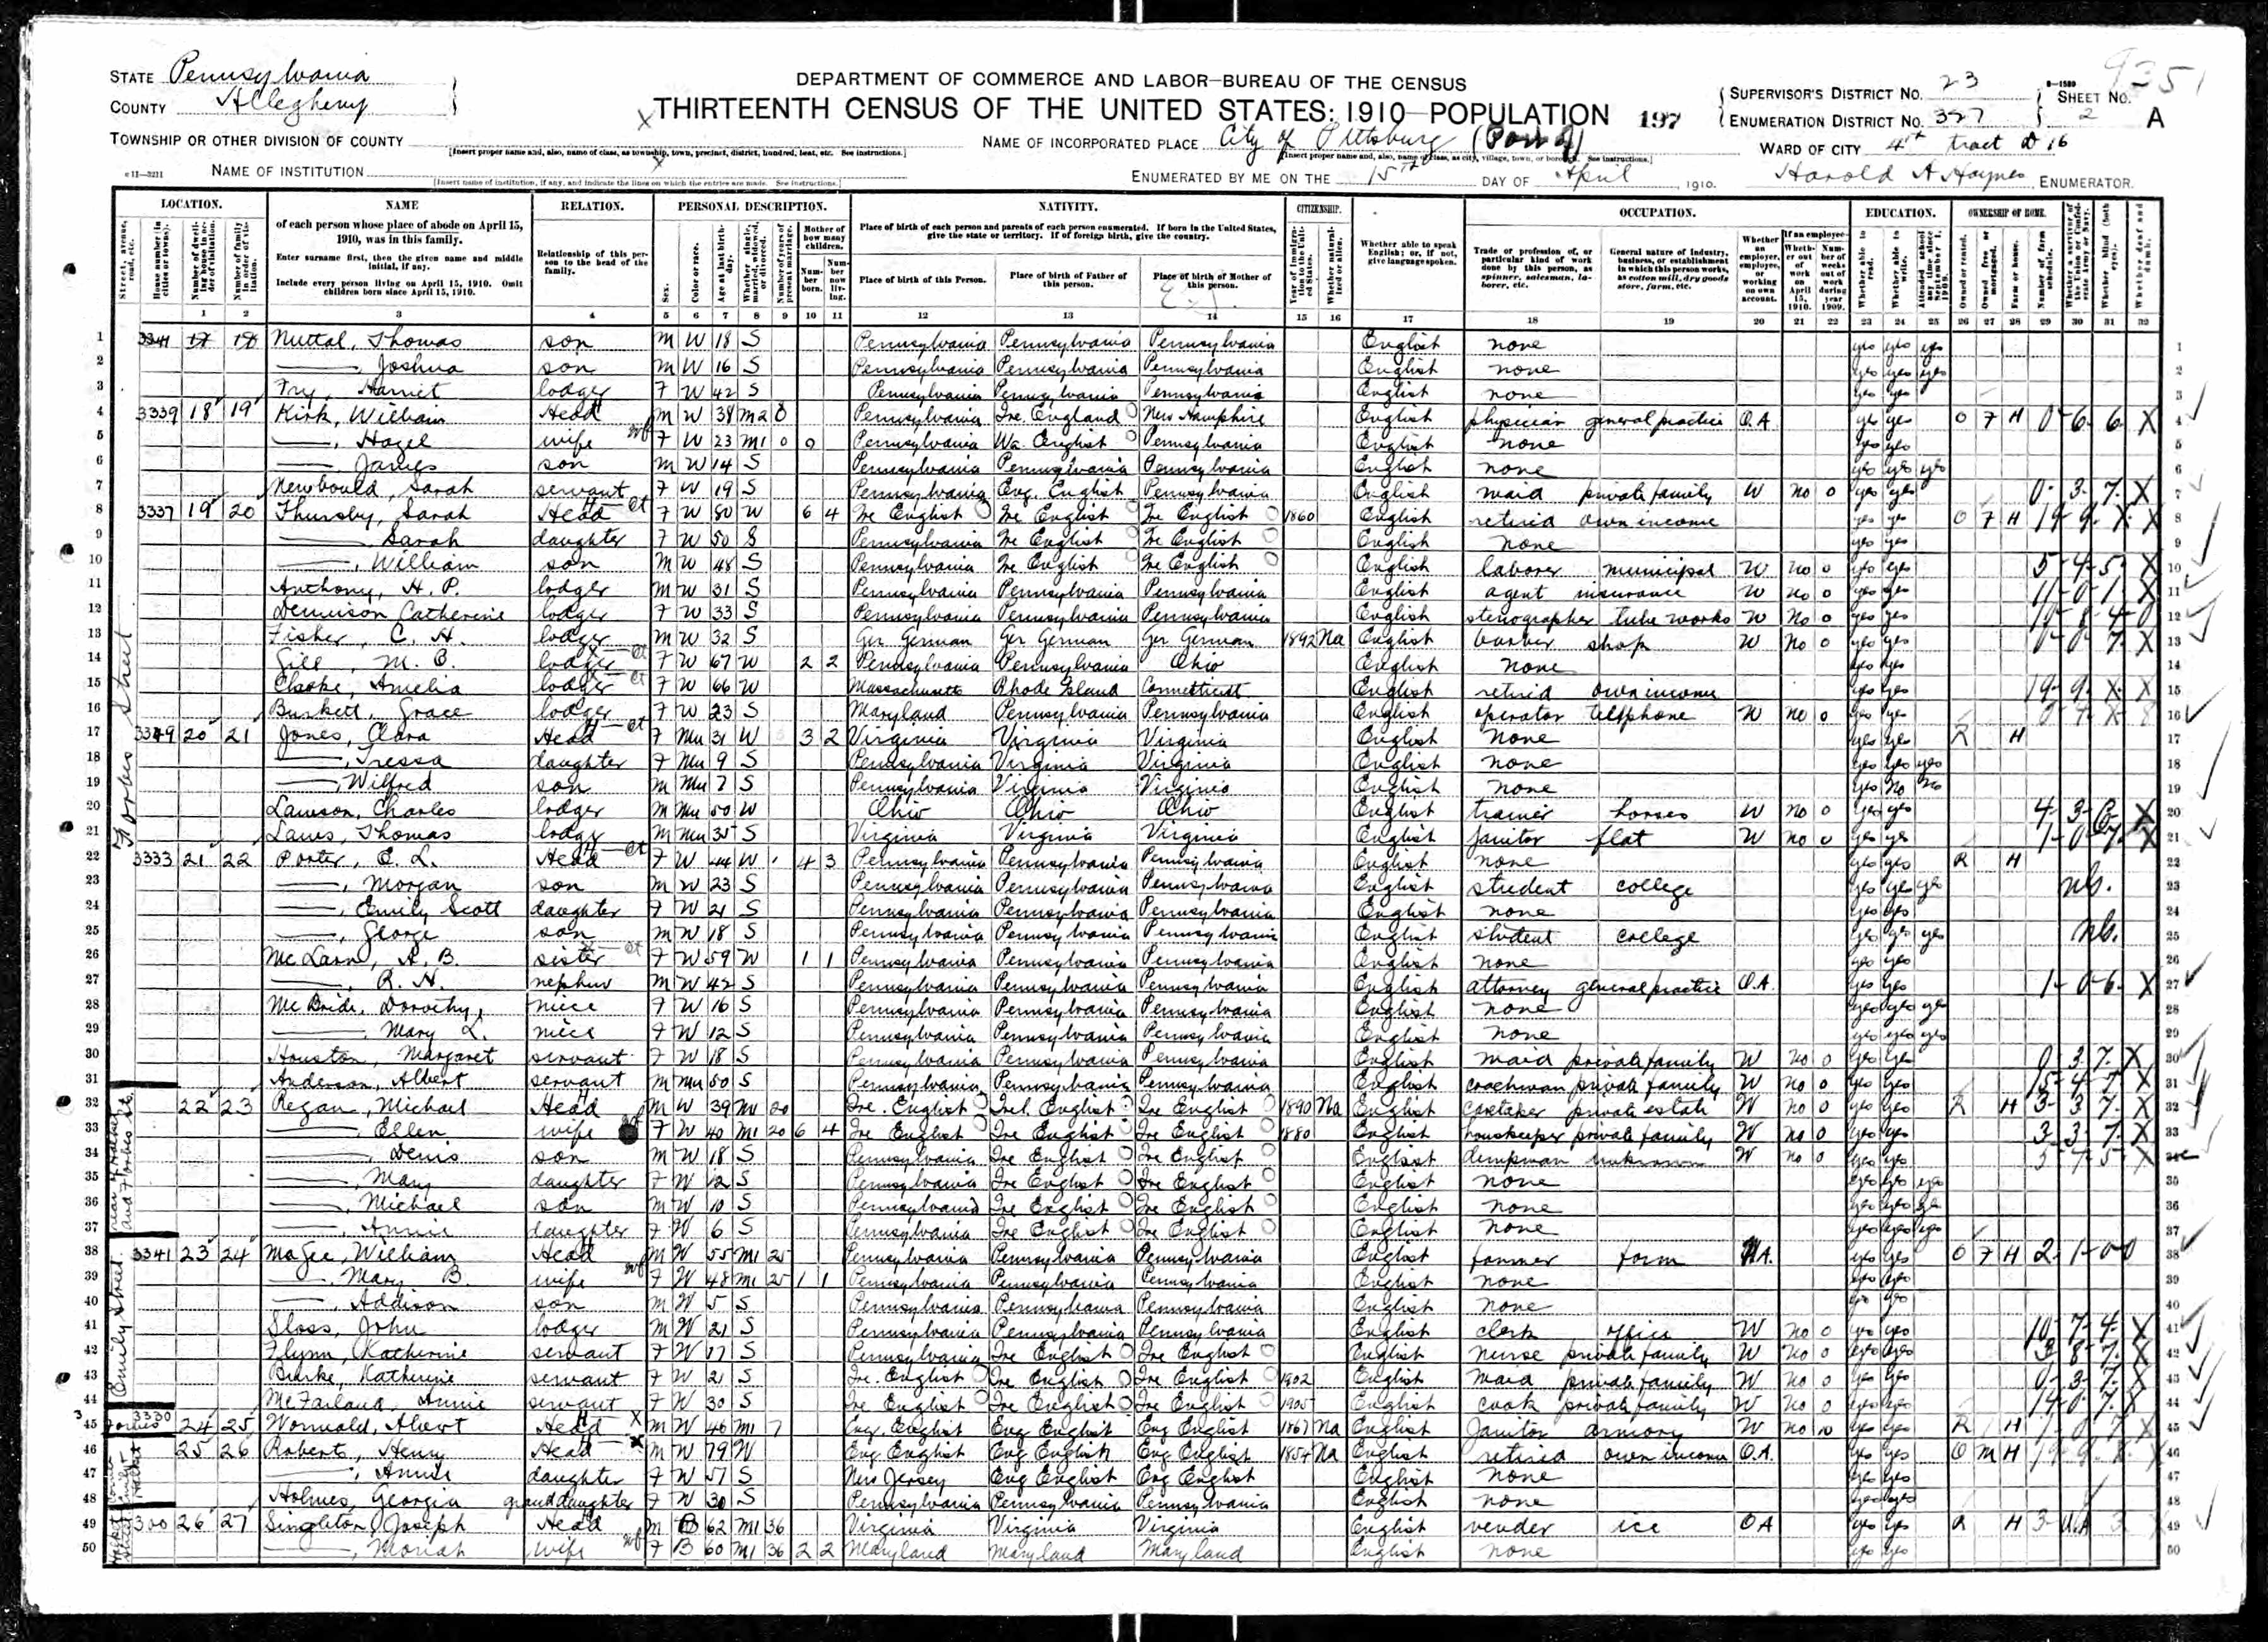 STATE Pennsylvania
COUNTY Allegheny
TOWNSHIP OR OTHER DIVISION OF COUNTY
[Insert proper name and, also, name of class, as township, town, precinct, district, hundred, beat, etc. See instructions.]
NAME OF INSTITUTION
[Insert name of institution, if any, and indicate the lines on which the entries are made. See instructions.]
DEPARTMENT OF COMMERCE AND LABOR—BUREAU OF THE CENSUS
THIRTEENTH CENSUS OF THE UNITED STATES: 1910—POPULATION 197
NAME OF INCORPORATED PLACE City of Pittsburg
[Insert proper name and, also, name of class, as city, village, town, or borough. See instructions.]
ENUMERATED BY ME ON THE 15th DAY OF April, 1910. Harold A Haynes ENUMERATOR.
SUPERVISOR'S DISTRICT NO. 23
ENUMERATION DISTRICT NO. 327
SHEET NO. 2 A
WARD OF CITY 4th tract D 16
LOCATION. NAME RELATION. PERSONAL DESCRIPTION. NATIVITY. CITIZENSHIP. OCCUPATION. EDUCATION. OWNERSHIP OF HOME.
of each person whose place of abode on April 15, 1910, was in this family.
Enter surname first, then the given name and middle initial, if any.
Include every person living on April 15, 1910. Omit children born since April 15, 1910.
Relationship of this person to the head of the family.
Place of birth of each person and parents of each person enumerated. If born in the United States, give the state or territory. If of foreign birth, give the country.
Place of birth of this Person. Place of birth of Father of this person. Place of birth of Mother of this person.
Whether able to speak English; or, if not, give language spoken.
Trade or profession of, or particular kind of work done by this person, as spinner, salesman, laborer, etc.
General nature of industry, business, or establishment in which this person works, as cotton mill, dry goods store, farm, etc.
1 2 3 4 5 6 7 8 9 10 11 12 13 14 15 16 17 18 19 20 21 22 23 24 25 26 27 28 29 30 31 32
1 3341 17 18 Nuttal, Thomas son M W 18 S Pennsylvania Pennsylvania Pennsylvania English none yes yes yes
2 Joshua son M W 16 S Pennsylvania Pennsylvania Pennsylvania English none yes yes yes
3 Fry, Harriet lodger F W 42 S Pennsylvania Pennsylvania Pennsylvania English none yes yes
4 3339 18 19 Kirk, William Head M W 38 M2 8 Pennsylvania Ire England New Hampshire English physician general practice O.A. yes yes O F H 0-6-6 X
5 Hazel wife F W 23 M1 0 0 Pennsylvania Wa English Pennsylvania English none yes yes
6 James son M W 14 S Pennsylvania Pennsylvania Pennsylvania English none yes yes yes
7 Newbould, Sarah servant F W 19 S Pennsylvania Eng. English Pennsylvania English maid private family W no 0 yes yes 0-3-7-X
8 3337 19 20 Thursby, Sarah Head F W 80 W 6 4 Ire English Ire English Ire English 1860 English retired own income yes yes O F H 19-9-X X
9 Sarah daughter F W 50 S Pennsylvania Ire English Ire English English none yes yes
10 William son M W 48 S Pennsylvania Ire English Ire English English laborer municipal W no 0 yes yes 5-4-5-X
11 Anthony, H. P. lodger M W 31 S Pennsylvania Pennsylvania Pennsylvania English agent insurance W no 0 yes yes 11-0-1-X
12 Dennison Catherine lodger F W 33 S Pennsylvania Pennsylvania Pennsylvania English stenographer tube works W No 0 yes yes
13 Fisher, C. H. lodger M W 32 S Ger German Ger German Ger German 1892 Na English barber shop W No 0 yes yes
14 Gill, M. C. lodger F W 67 W 2 2 Pennsylvania Pennsylvania Ohio English none yes yes
15 Amelia lodger F W 66 W Massachusetts Rhode Island Connecticut English retired own income yes yes 19-9-X X
16 Burkett, Grace lodger F W 23 S Maryland Pennsylvania Pennsylvania English operator telephone W no 0 yes yes
17 3349 20 21 Jones, Clara Head F Mu 31 W 3 2 Virginia Virginia Virginia English none yes yes R H
18 Tressa daughter F Mu 9 S Pennsylvania Virginia Virginia English none yes yes yes
19 Wilfred son M Mu 7 S Pennsylvania Virginia Virginia English none yes No No
20 Lawson, Charles lodger M Mu 50 W Ohio Ohio Ohio English trainer horses W no 0 yes yes 4-3-6-X
21 Laws, Thomas lodger M Mu 35 S Virginia Virginia Virginia English Janitor flat W no 0 yes yes 1-0-7-X
22 3333 21 22 Porter, E. L. Head F W 44 W 4 3 Pennsylvania Pennsylvania Pennsylvania English none yes yes R H
23 Morgan son M W 23 S Pennsylvania Pennsylvania Pennsylvania English student college yes yes yes
24 Emily Scott daughter F W 21 S Pennsylvania Pennsylvania Pennsylvania English none yes yes
25 George son M W 18 S Pennsylvania Pennsylvania Pennsylvania English student college yes yes yes
26 McLarn, A. B. sister F W 59 W 1 1 Pennsylvania Pennsylvania Pennsylvania English none yes yes
27 R. H. nephew M W 42 S Pennsylvania Pennsylvania Pennsylvania English attorney general practice O.A. yes yes 1-0-6-X
28 McBride, Dorothy niece F W 16 S Pennsylvania Pennsylvania Pennsylvania English none yes yes yes
29 Mary L. niece F W 12 S Pennsylvania Pennsylvania Pennsylvania English none yes yes yes
30 Houston, Margaret servant F W 18 S Pennsylvania Pennsylvania Pennsylvania English maid private family W no 0 yes yes 0-3-7-X
31 Anderson, Albert servant M Mu 50 S Pennsylvania Pennsylvania Pennsylvania English coachman private family W no 0 yes yes 5-4-7-X
32 22 23 Regan, Michael Head M W 39 M1 20 Ire. English Irel. English Ire English 1890 Na English caretaker private estate W no 0 yes yes R H 3-3-7-X
33 Ellen wife F W 40 M1 20 6 4 Ire English Ire English Ire English 1880 English housekeeper private family W no 0 yes yes 3-3-7-X
34 Denis son M W 18 S Pennsylvania Ire English Ire English English dumpman unknown W no 0 yes yes
35 Mary daughter F W 12 S Pennsylvania Ire English Ire English English none yes yes yes
36 Michael son M W 10 S Pennsylvania Ire English Ire English English none yes yes yes
37 Annie daughter F W 6 S Pennsylvania Ire English Ire English English none yes yes yes
38 3341 23 24 Magee, William Head M W 55 M1 25 Pennsylvania Pennsylvania Pennsylvania English farmer farm yes yes O F H 2-1-0 0
39 Mary B. wife F W 48 M1 25 1 1 Pennsylvania Pennsylvania Pennsylvania English none yes yes
40 Addison son M W 5 S Pennsylvania Pennsylvania Pennsylvania English none yes yes
41 Sloss, John lodger M W 21 S Pennsylvania Pennsylvania Pennsylvania English clerk office W no 0 yes yes 10-7-4-X
42 Flynn, Katherine servant F W 17 S Pennsylvania Ire English Ire English English nurse private family W No 0 yes yes
43 Burke, Katherine servant F W 21 S Ire. English Ire English Ire English 1902 English maid private family W No 0 yes yes 0-3-7-X
44 McFarland, Annie servant F W 30 S Ire English Ire English Ire English 1905 English cook private family W No 0 yes yes
45 Forbes 3330 24 25 Wormald, Albert Head M W 46 M1 7 Eng. English Eng English Eng English 1867 Na English Janitor armory W no 10 yes yes R H
46 25 26 Roberts, Henry Head M W 79 W Eng English Eng English Eng English 1854 Na English retired own income O.A. yes yes O M H
47 Annie daughter F W 51 S New Jersey Eng English Eng English English none yes yes
48 Holmes, Georgia granddaughter F W 30 S Pennsylvania Pennsylvania Pennsylvania English none yes yes
49 300 26 27 Singleton, Joseph Head M B 62 M1 36 Virginia Virginia Virginia English vender ice OA yes yes R H
50 Moriah wife F B 60 M1 36 2 2 Maryland Maryland Maryland English none yes yes
Forbes Street
Emily Street